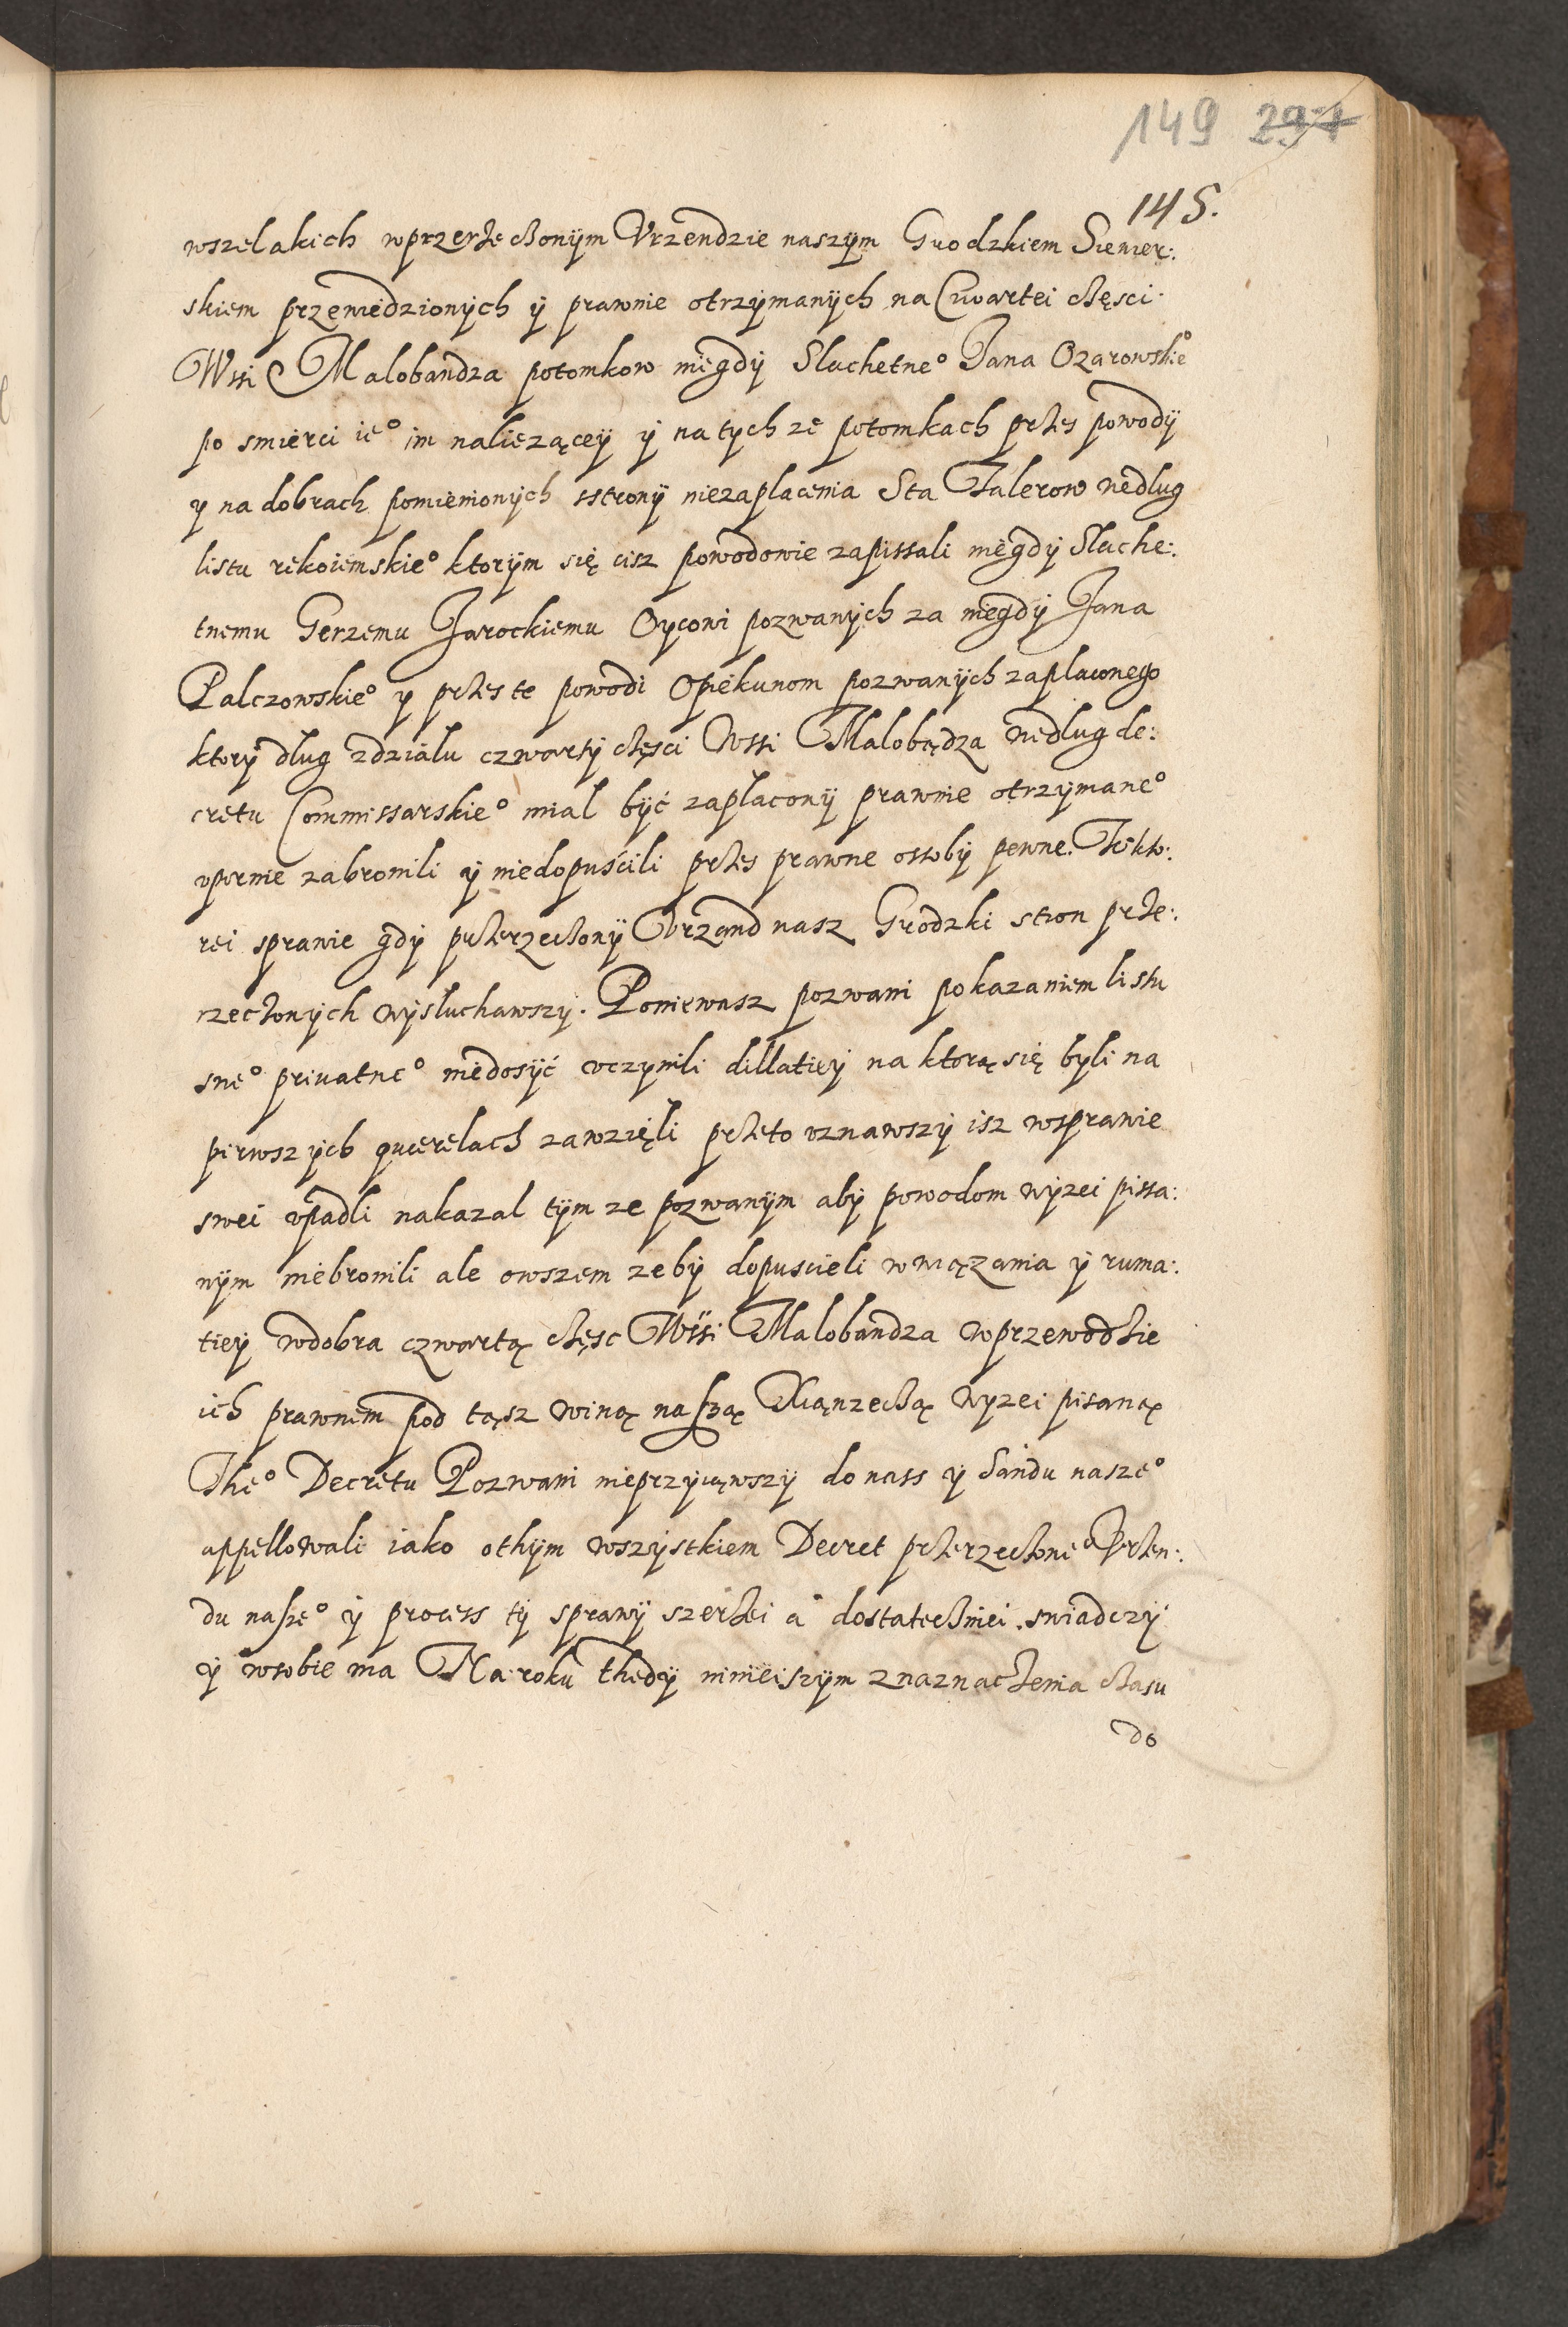 149 291
145.
wszelakich wprzerzeczonÿm Vrzendzie naszÿm Grodzkiem Siewier:
skiem przewiedzionÿch ÿ prawnie otrzÿmanÿch na Czwartei częsci
Wssi Malobandza potomkow niegdÿ Slachetne° Jana Ozarowskie°
po smierci ie° im nalieząceÿ ÿ na tych ze potomkach przes powodÿ
y na dobrach pomienionÿch sstronÿ niezaplacenia Sta Talerow wedlug
listu rekoiemskie° ktorÿm się cisz powodowie zapissali niegdÿ Slache:
tnemu Gerzemu Jarockiemu Oycowi pozwanÿch za niegdÿ Jana
Palczowskie° y przes te powodi Opiekunom pozwanÿch zaplaconego
ktorÿ dlug zdzialu czwartÿ częsci Wssi Malobądza wedlug de:
cretu Commissarskie° mial bÿć zaplaconÿ prawnie otrzÿmane°
vpornie zabronili ÿ niedopuścili przes prawne ossobÿ pewne. Tekto:
rei sprawie gdÿ przerzeczonÿ Vrzand nasz Grodzki stron prze:
rzeczonÿch wÿsluchawszÿ. Poniewasz pozwani pokazaniem listu
sne° priuatne° niedosÿć vczynili dillatieÿ na ktorą się byli na
pirwszÿch querelach zawzięli przeto vznawszÿ isz wsprawie
swei vpadli nakazal tÿm ze pozwanÿm abÿ powodom wÿzei pissa:
nÿm niebronili ale owszem zebÿ dopuscieli wwiązania ÿ ruma:
tieÿ wdobra czwartą częsc Wssi Malobandza wprzewodzie
ich prawnem pod tąsz winą naszą Xianzeczą wyzei pisaną
The° Decretu Pozwani nieprzyiąwszÿ do nass ÿ Sandu nasze°
appellowali iako othÿm wszÿstkiem Decret przerzeczone° Vrzen:
du nasze° ÿ process tÿ sprawÿ szerzei a dostateczniei swiadczÿ
ÿ wsobie ma Na roku thedÿ ninieiszÿm znaznaczenia czasu
do